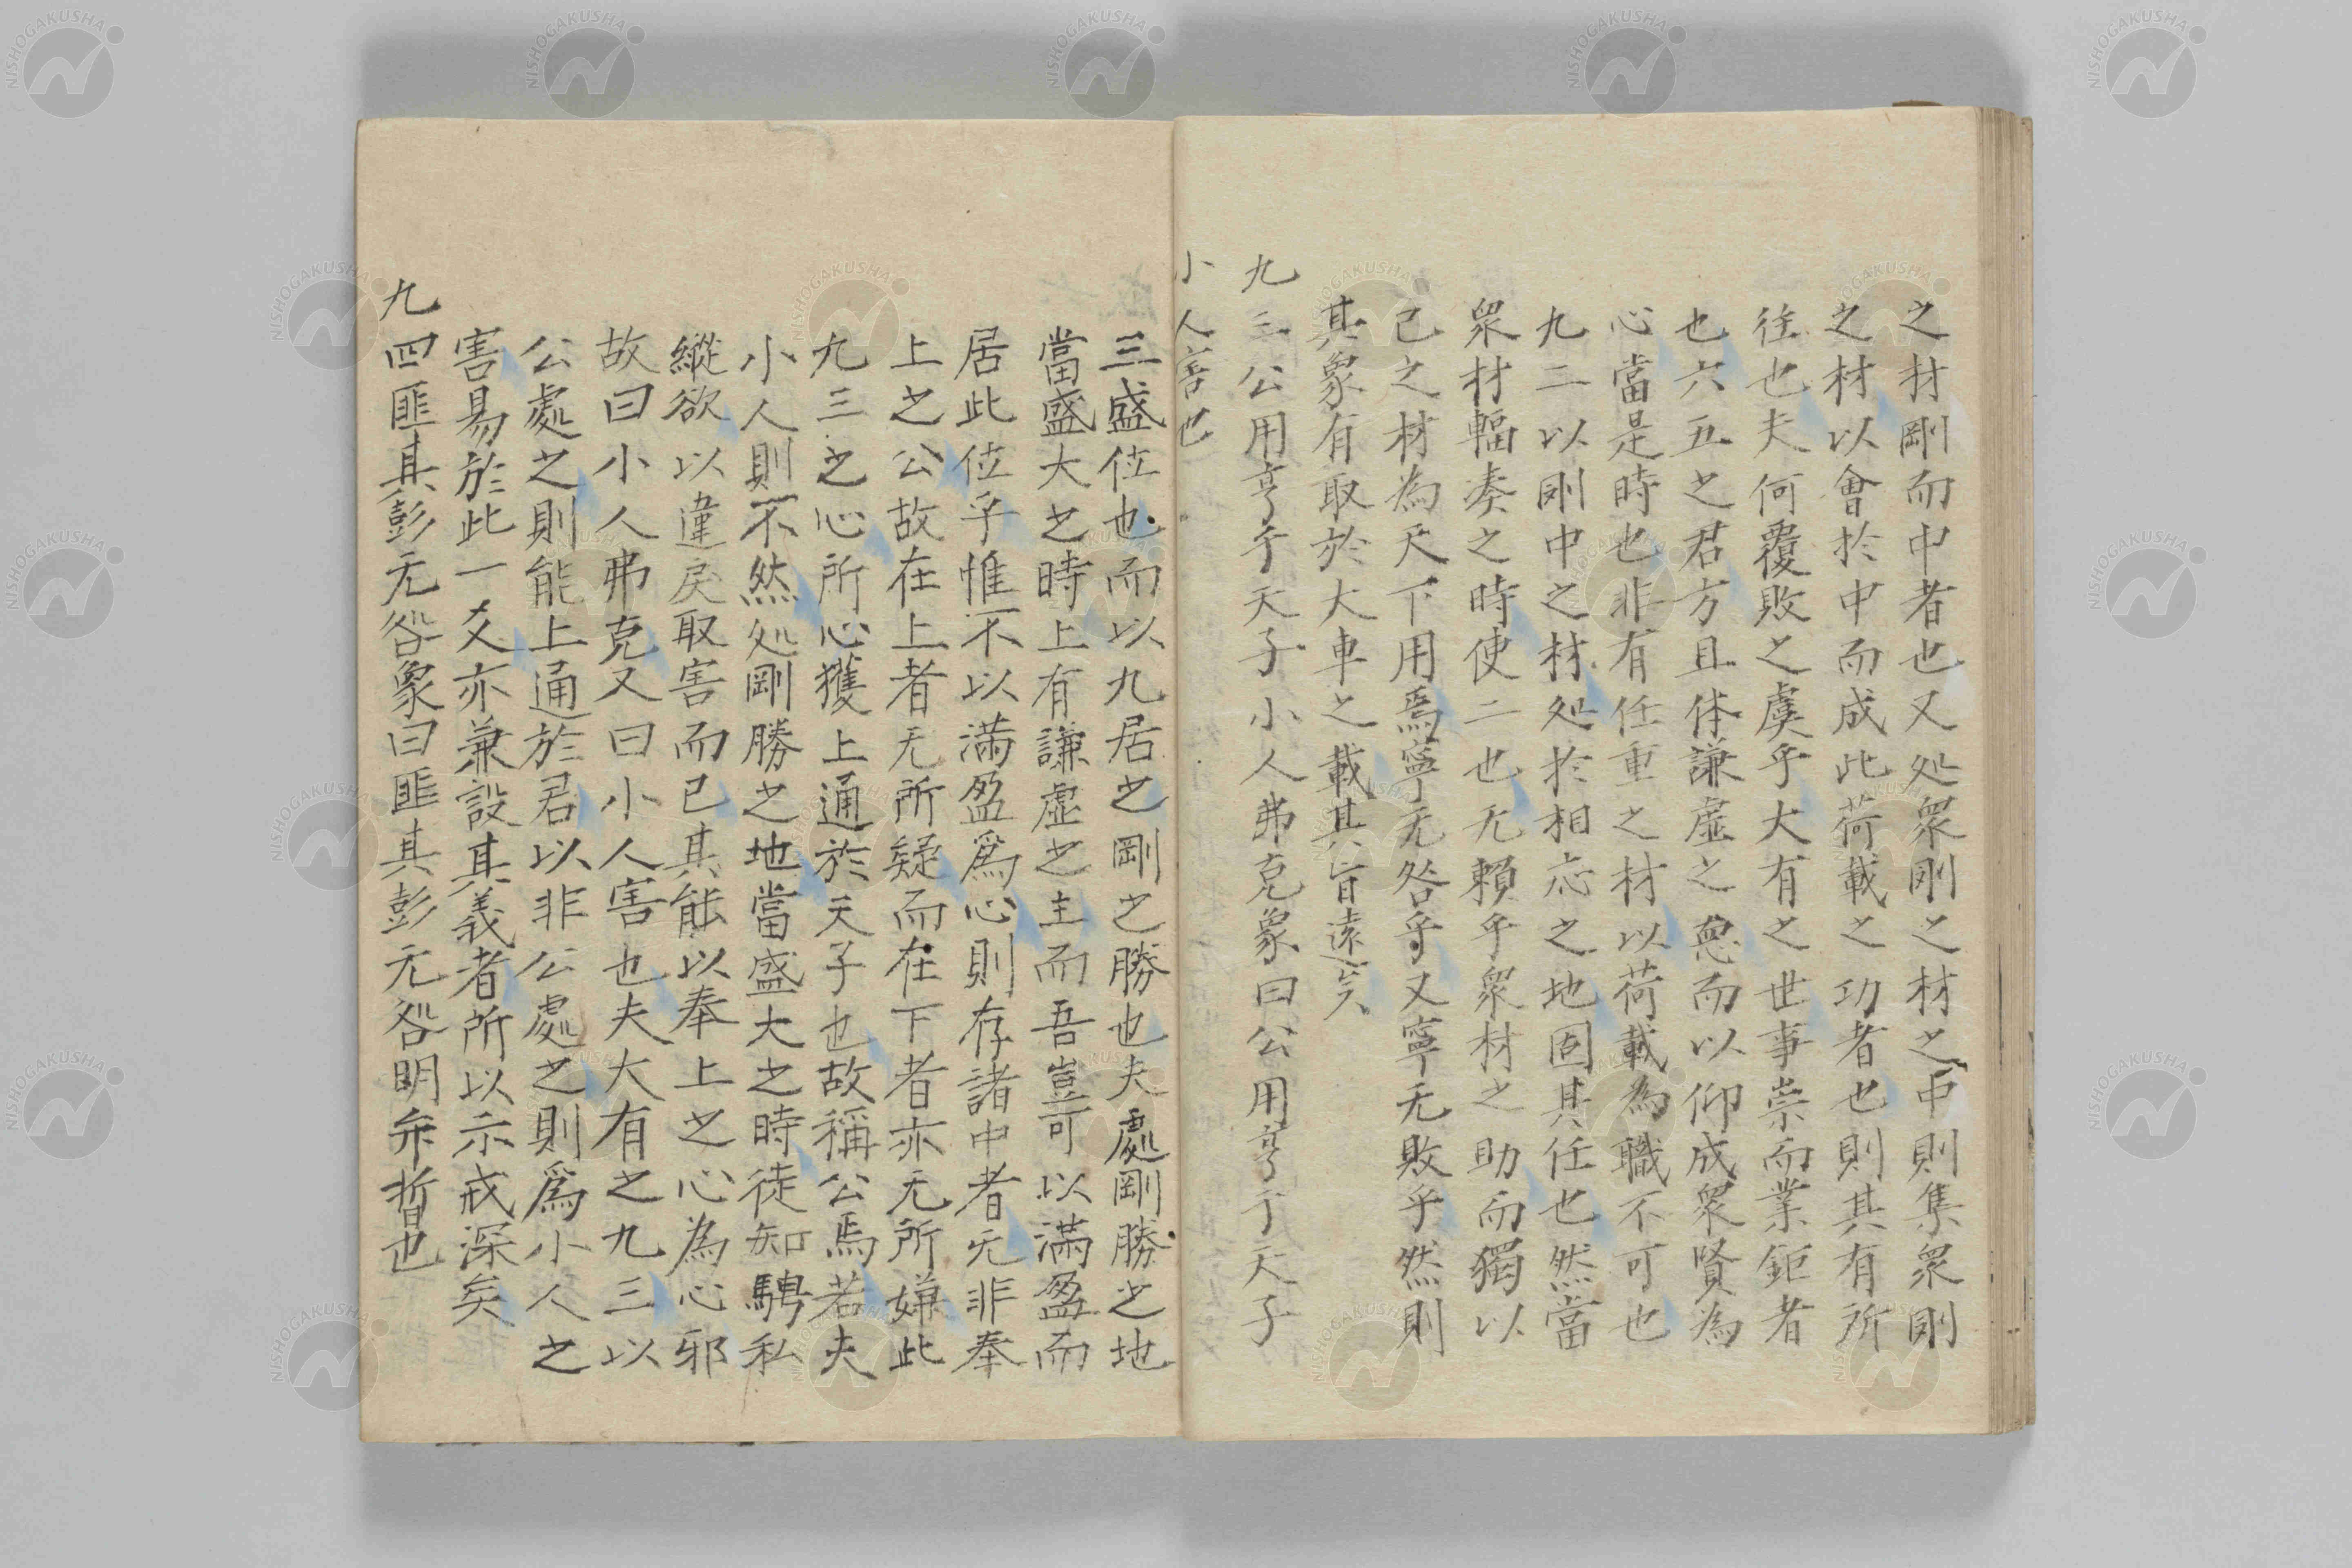 之材剛而中者也又処衆剛之材之中則集衆剛
之材以會於中而成此荷載之功者也則其有所
往也夫何覆敗之虞乎大有之世事崇而業鉅者
也六五之君方且体謙虚之悳而以仰成衆賢為
心當是時也非有任重之材以荷載為職不可也
九二以剛中之材処於相応之地固其任也然當
衆材輻湊之時使二也无賴乎衆材之助而獨以
己之材為天下用焉寧无咎乎又寧无敗乎然則
其象有取於大車之載其旨遠矣
九三公用亨于天子小人弗克象曰公用亨于天子
小人害也
三盛位也而以九居之剛之勝也夫處剛勝之地
當盛大之時上有謙虚之主而吾豈可以滿盈而
居此位乎惟不以滿盈爲心則存諸中者无非奉
上之公故在上者无所疑而在下者亦无所嫌此
九三之心所心獲上通於天子也故稱公焉若夫
小人則不然処剛勝之地當盛大之時徒知騁私
縱欲以違戾取害而已其能以奉上之心為心邪
故曰小人弗克又曰小人害也夫大有之九三以
公處之則能上通於君以非公處之則爲小人之
害易於此一爻亦兼設其義者所以示戒深矣
九四匪其彭无咎象曰匪其彭无咎明弁晢也
NISHOGAKUSHA